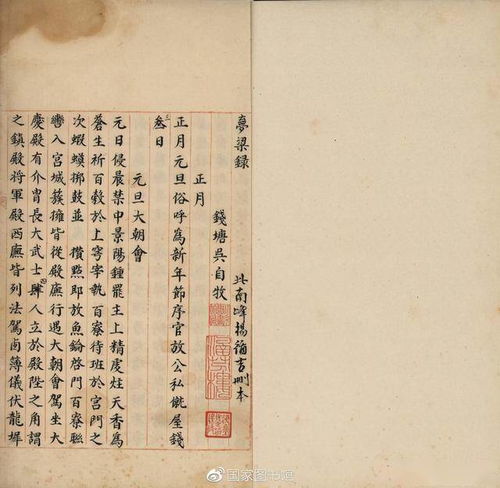 夢梁録
此南峰楊循吉刪本
錢塘吳自牧
正月
正月元旦俗呼為新年節序官放公私僦屋錢
叁日
元旦大朝會
元日侵晨禁中景陽鍾罷主上精虔炷天香為
蒼生祈百穀於上穹宰執百寮待班於宮門之
次蝦蟆梆鼓並攢點即放魚鑰啓門百寮聯
轡入宮城簇擁皆從殿廡行遇大朝會駕坐大
慶殿有介胄長大武士肆人立於殿陛之角謂
之鎮殿將軍殿西廡皆列法駕鹵薄儀伏龍墀
国家图书馆